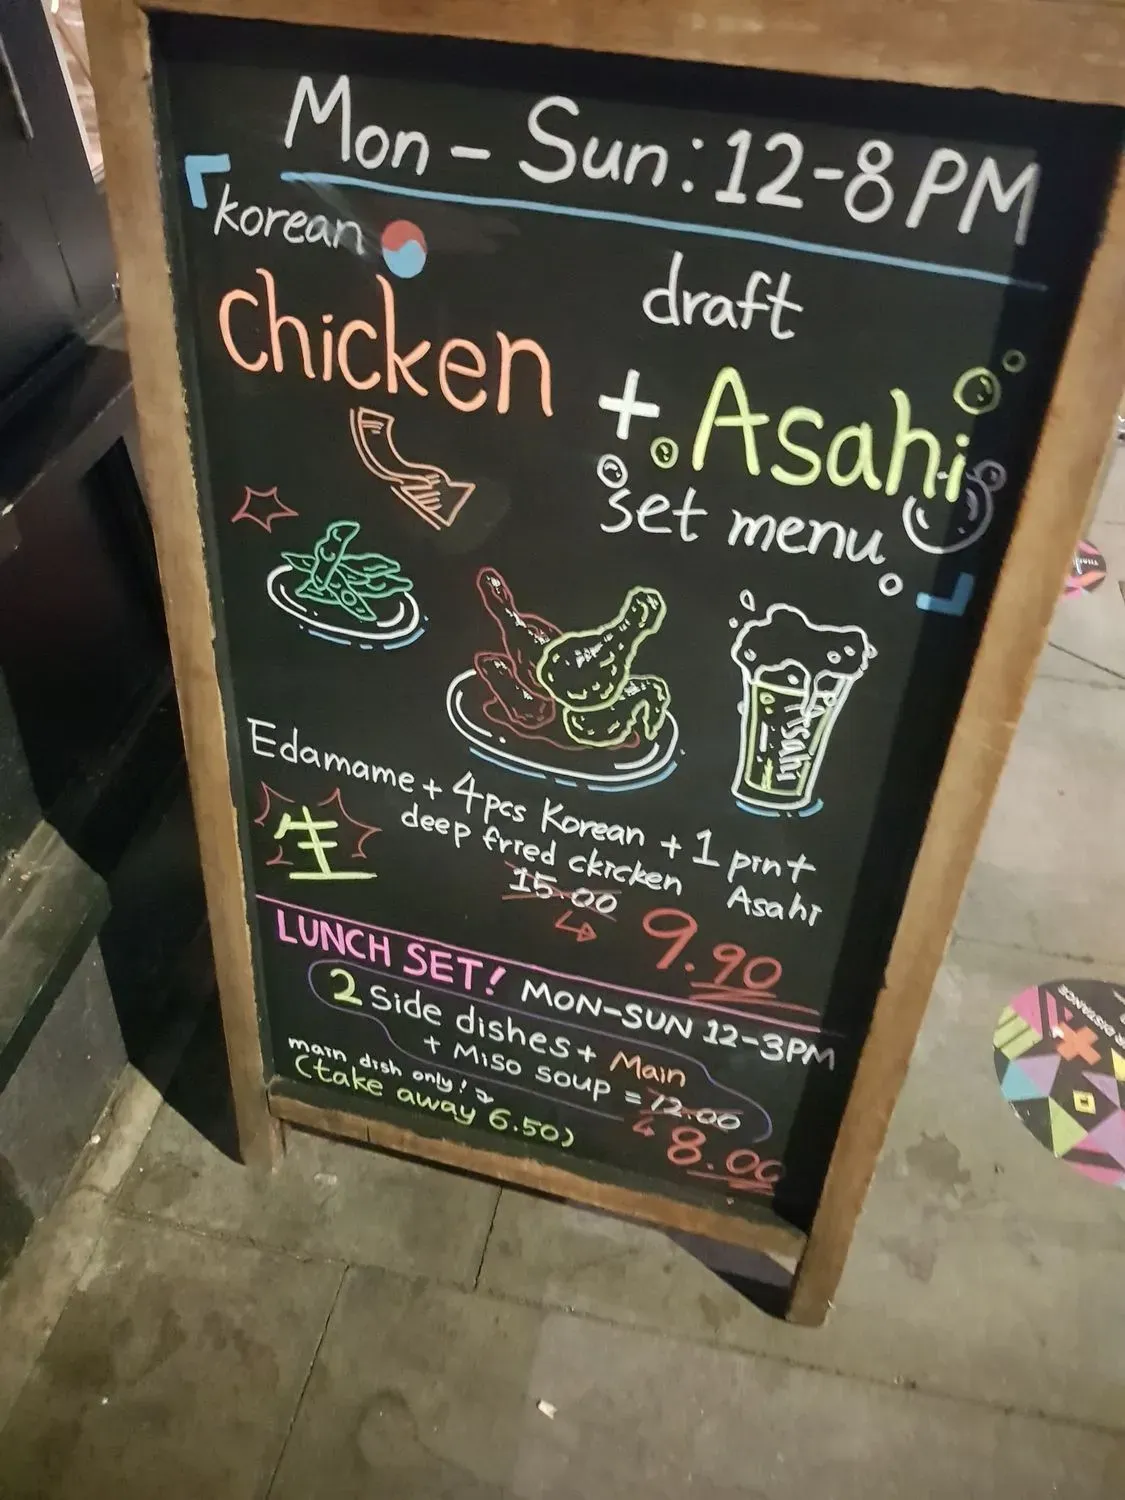 Mon - Sun: 12-8 PM
korean
chicken
draft
+ Asahi
set menu
Edamame + 4pcs Korean + 1 pint
deep fried ckicken Asahi
生
15.00
9.90
LUNCH SET! MON-SUN 12-3PM
2 Side dishes + Main
+ Miso soup = 12.00
8.00
main dish only!
(take away 6.50)
Asahi
DISTANCE